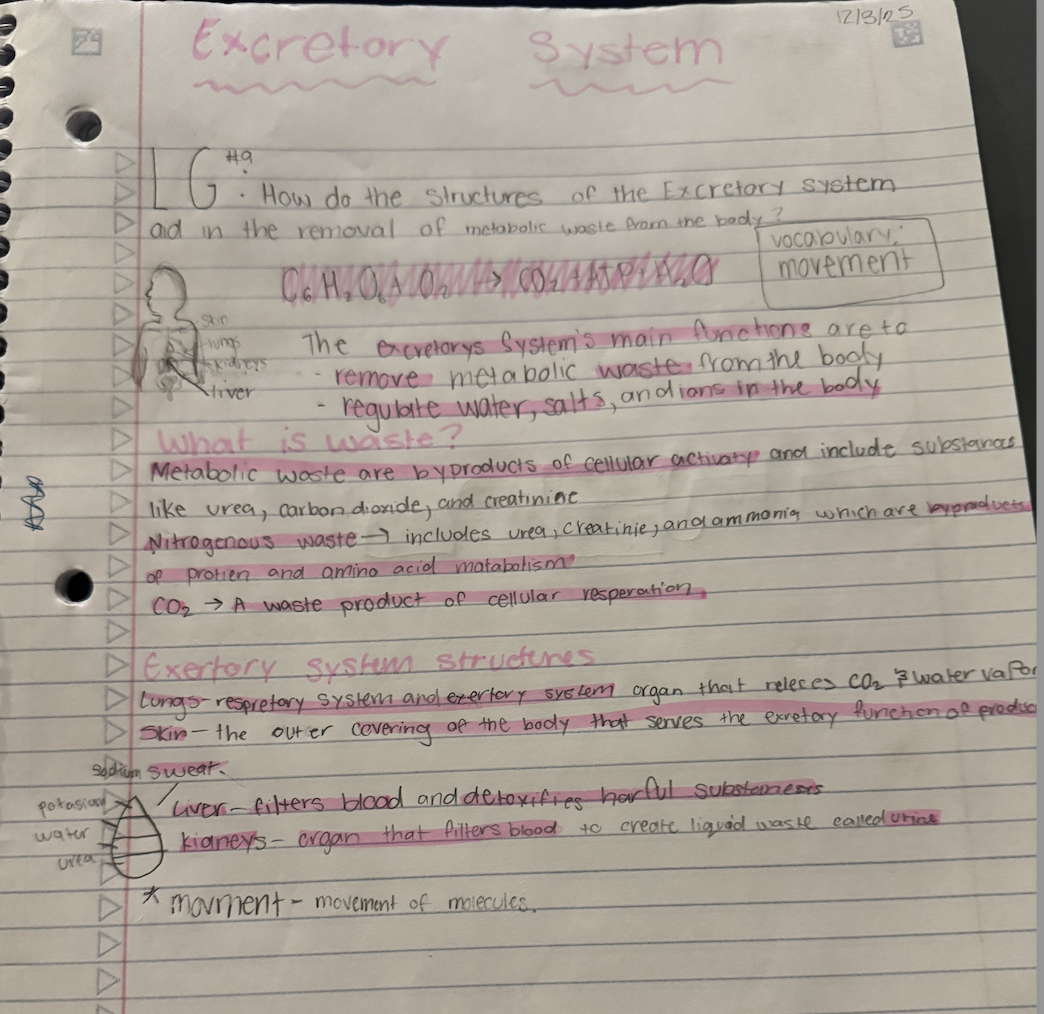 12/3/25
29
Excretory System
LG #9: How do the structures of the Excretory system
aid in the removal of metabolic waste from the body?
vocabulary:
movement
C6H12O6+O2 → CO2+ATP+H2O
skin
lungs
kidneys
liver
The excretorys System's main functions are to
- remove metabolic waste from the body
- regulate water, salts, and ions in the body
What is waste?
Metabolic waste are byproducts of cellular activaty and include substances
like urea, carbon dioxide, and creatinine
Nitrogenous waste → includes urea, creatinie, and ammonia which are byproducts
of protien and amino acid matabolism
CO2 → A waste product of cellular resperation.
Exertory system structures
Lungs- respretory system and exertory system organ that releces CO2 & water vapor
Skin - the outer covering of the body that serves the exretory function of produc
sweat.
sodium
potasium
water
urea
Liver- filters blood and detoxifies harful substaneses
kidneys- organ that filters blood to create liquid waste called urine
* movment - movement of molecules.